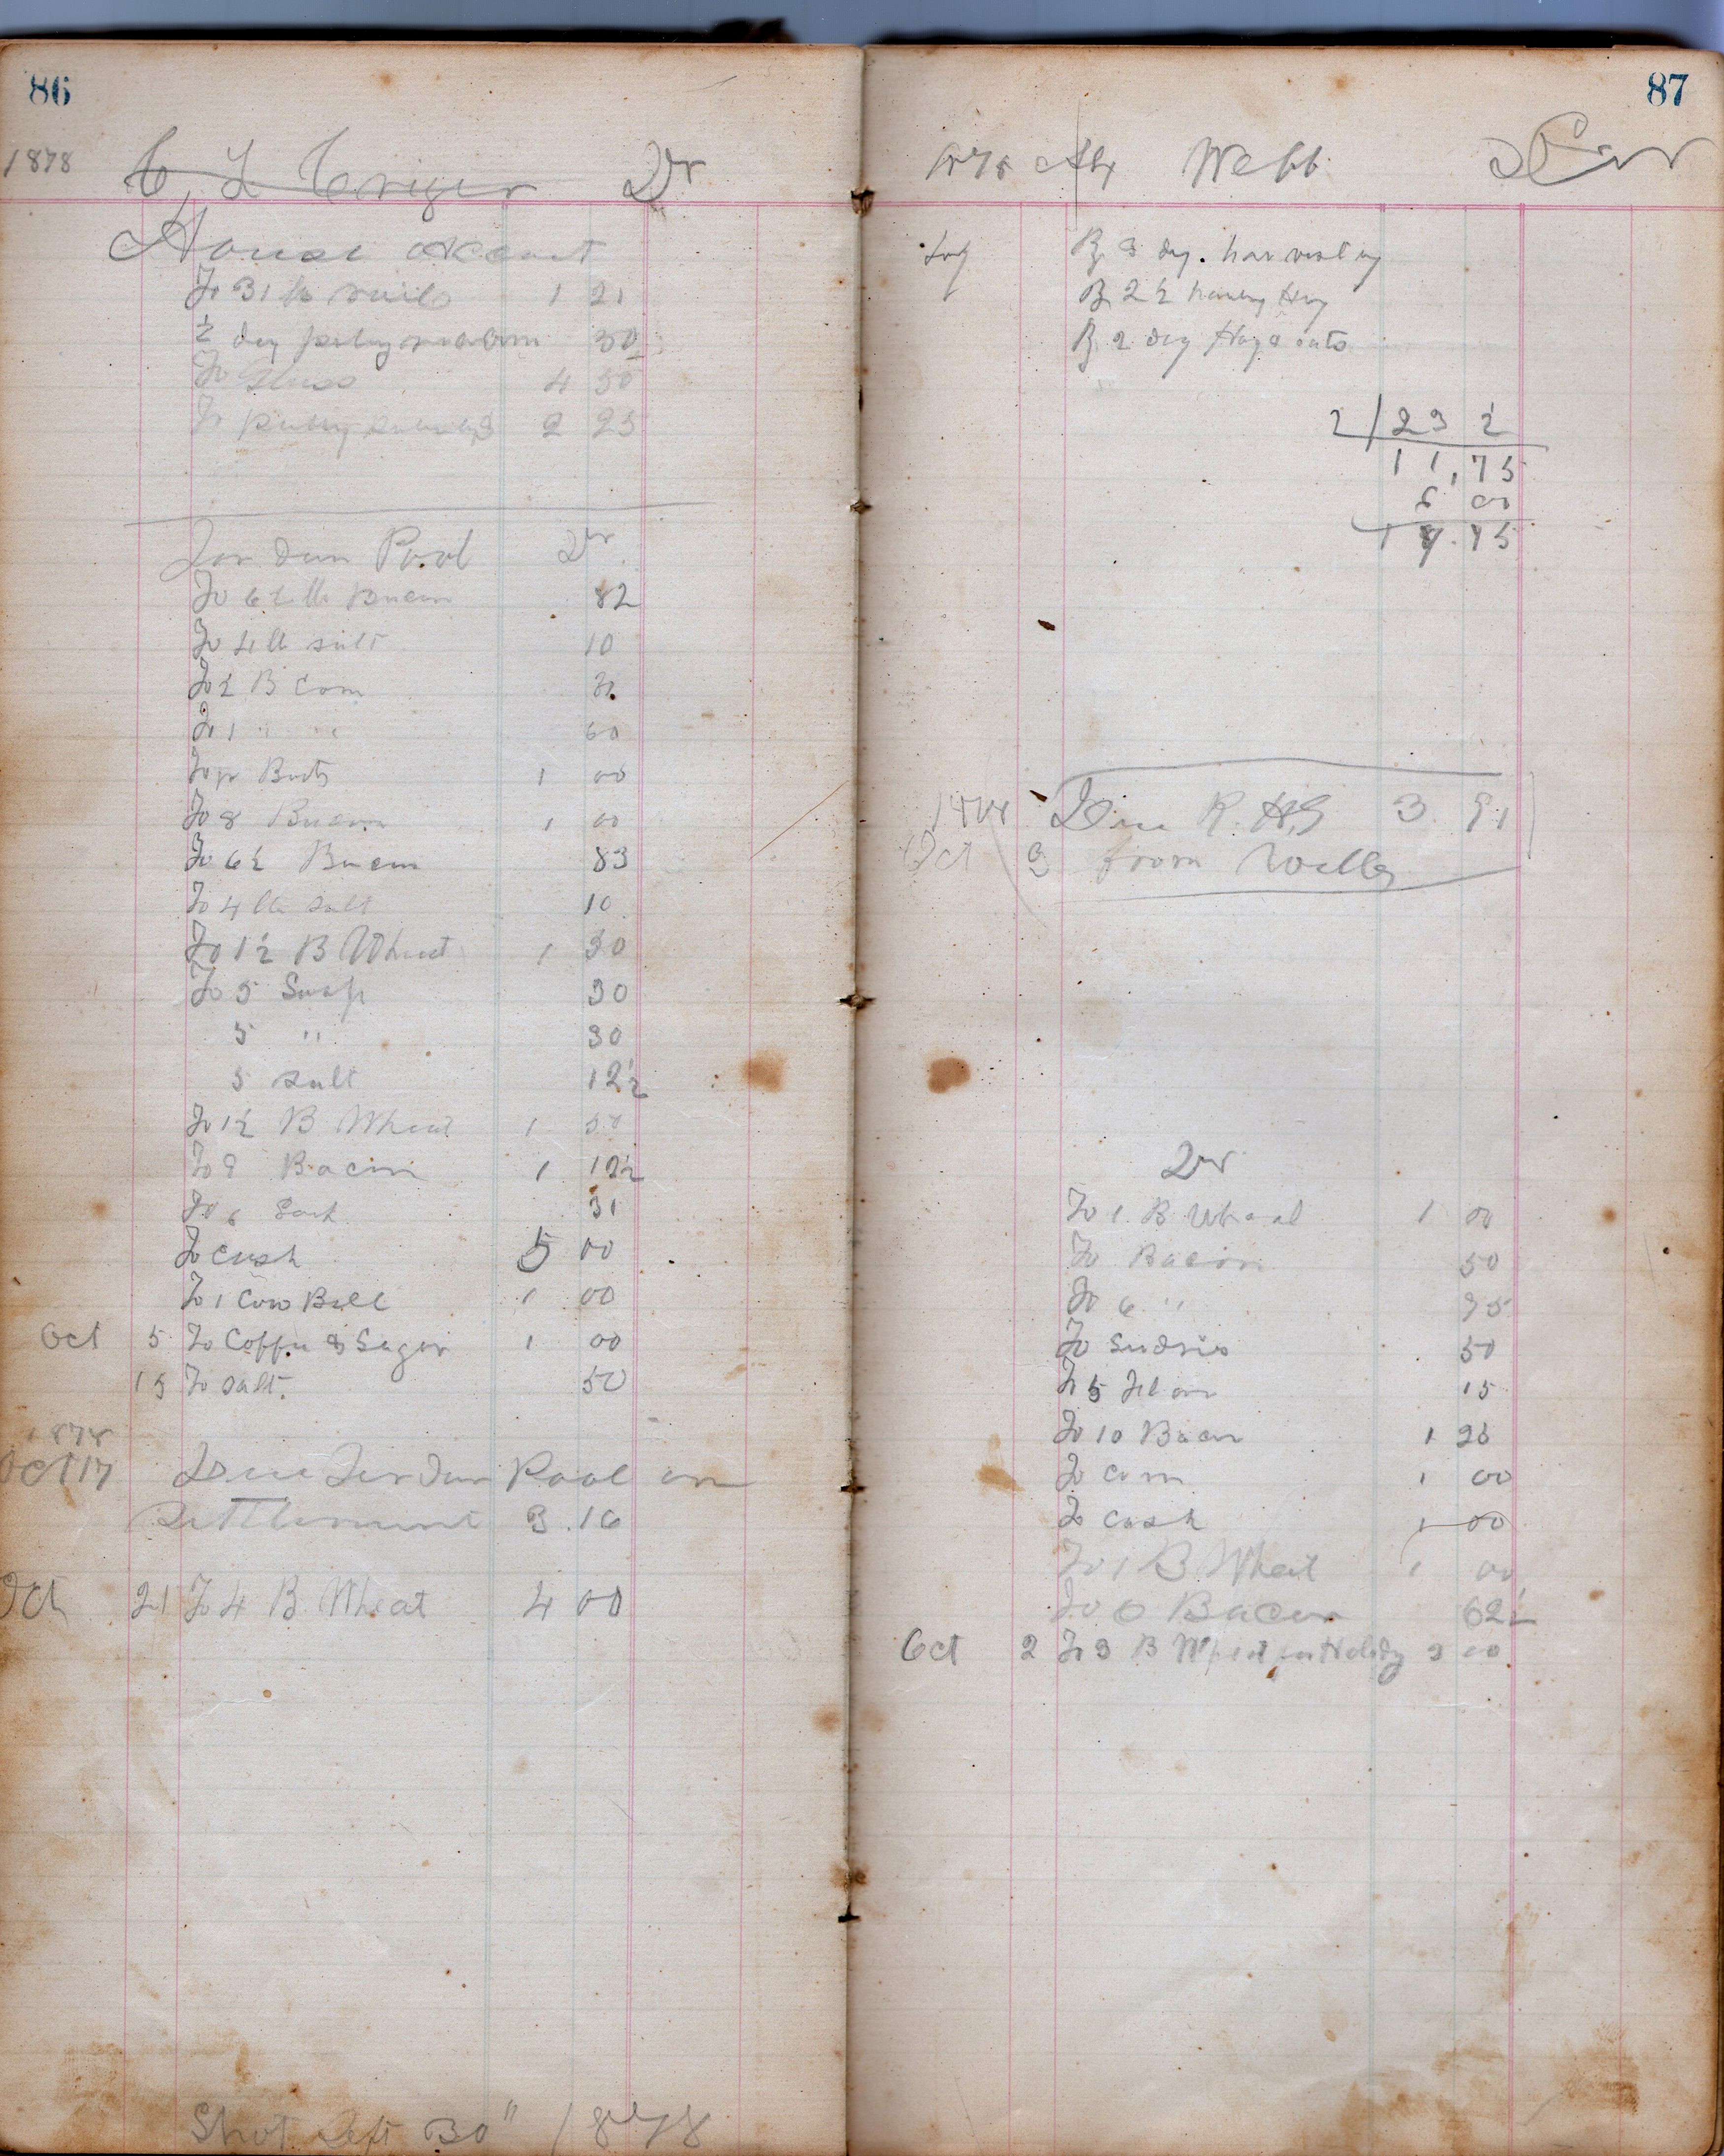 86
1878 C, L Criger Dr
House account
To 31 lb nails 1 21
½ day 50
To Glass 4 50
To 2 25
Jordan Pool Dr
To 6½ lb Bacon 82
To 4 lb salt 10
To ½ B Corn
To 1 " " 60
To pr Boots 1 00
To 8 Bacon 1 00
To 6½ Bacon 83
To 4 lb salt 10
To 1½ B Wheat 1 50
To 5 Soap 30
5 " 30
5 salt 12½
To 1½ B Wheat 1 50
To 9 Bacon 1 12½
To 6 31
To cash 5 00
To 1 Cow Bell 1 00
Oct 5 To Coffee & Sugar 1 00
15 To salt. 50
1878
Oct 17 Due Jordan Pool on
Settlement 3.16
Oct 21 To 4 B Wheat 4 00
Shot Sept 30" 1878
87
1878 Webb Cr
By 3 day. harvesting
By 2½ Hay
By 2 day Hay & oats
2 / 23 ½
11,75
6 00
17.75
1878 Due R. H, G 3 91
Oct 3 from Webb
Dr
To 1 B Wheat 1 00
To Bacon 50
To 6 " 75
To Sudries 50
To 5 15
To 10 Bacon 1 25
To corn 1 00
To cash 1 00
To 1 B Wheat 1 00
To Bacon 62½
Oct 2 To 3 B Wheat 3 00